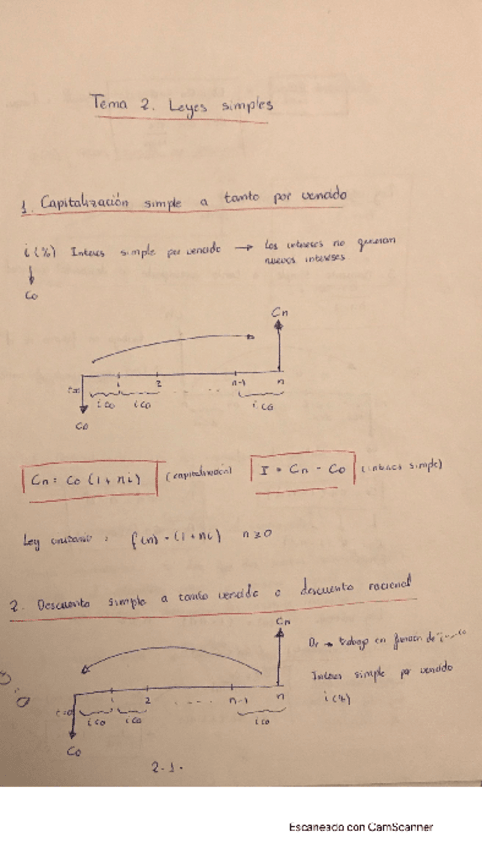 Tema 2. Leyes simples
1. Capitalización simple a tanto por vencido
i (%) Interes simple por vencido → Los intereses no generan
nuevos intereses
↓
Co
Cn
1 2 . . . . n-1 n
i Co i Co i Co
Co
Cn = Co (1 + ni) (capitalización) I = Cn - Co (interes simple)
Ley : f(n) = (1 + ni) n ≥ 0
2. Descuento simple a tanto vencido o descuento racional
Cn
Dr → trabajo en función de
Interes simple por vencido
i (%)
1 2 . . . . n-1 n
i Co i Co i Co
Co
2.1.
Escaneado con CamScanner